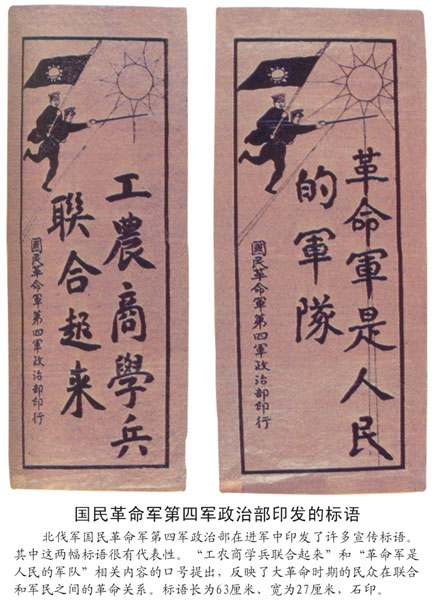 工農商學兵
聯合起来
國民革命軍第四軍政治部印行
革命軍是人民
的軍隊
國民革命軍第四軍政治部印行
国民革命军第四军政治部印发的标语
北伐军国民革命军第四军政治部在进军中印发了许多宣传标语。
其中这两幅标语很有代表性。“工农商学兵联合起来”和“革命军是
人民的军队”相关内容的口号提出，反映了大革命时期的民众在联合
和军民之间的革命关系。标语长为63厘米、宽为27厘米，石印。